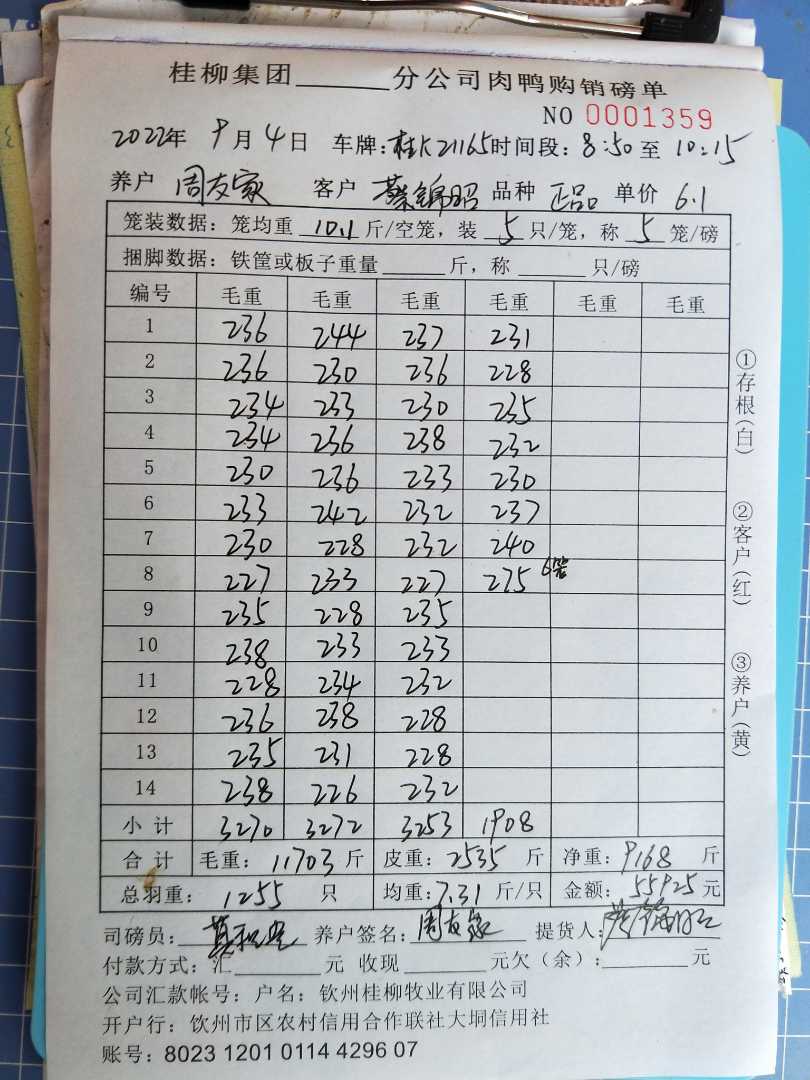 桂柳集团______分公司肉鸭购销磅单
NO 0001359
2022年 9月 4日 车牌:桂K21165 时间段:8:50至 10:15
养户 周友家 客户 蔡锦昭 品种 正品 单价 6.1
笼装数据:笼均重 10.1 斤/空笼,装 5 只/笼,称 5 笼/磅
捆脚数据:铁筐或板子重量______斤,称______只/磅
编号 毛重 毛重 毛重 毛重 毛重 毛重
1 236 244 237 231
2 236 230 236 228
3 234 233 230 235
4 234 236 238 232
5 230 236 233 230
6 233 242 232 237
7 230 228 232 240
8 227 233 227 275 6笼
9 235 228 235
10 238 233 233
11 228 234 232
12 236 238 228
13 235 231 228
14 238 226 232
小计 3270 3272 3253 1908
合计 毛重:11703斤 皮重:2535斤 净重:9168斤
总羽重:1255只 均重:7.31斤/只 金额:55925元
司磅员: 养户签名:周友家 提货人:
付款方式:汇______元 收现______元欠(余):______元
公司汇款帐号:户名:钦州桂柳牧业有限公司
开户行:钦州市区农村信用合作联社大垌信用社
账号:8023 1201 0114 4296 07
①存根(白) ②客户(红) ③养户(黄)